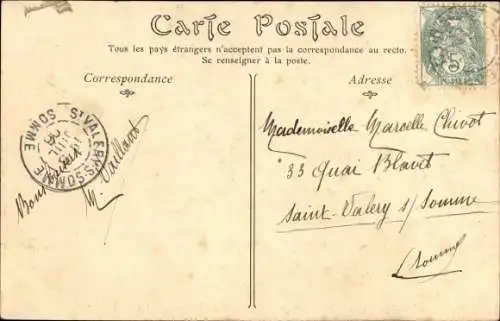 Carte Postale
Tous les pays étrangers n'acceptent pas la correspondance au recto.
Se renseigner à la poste.
Correspondance
Adresse
ST VALERY-S-SOMME
SOMME
M. Vaillant
Mademoiselle Marcelle Chivot
33 Quai Blavet
Saint-Valery s/ Somme
(Somme)